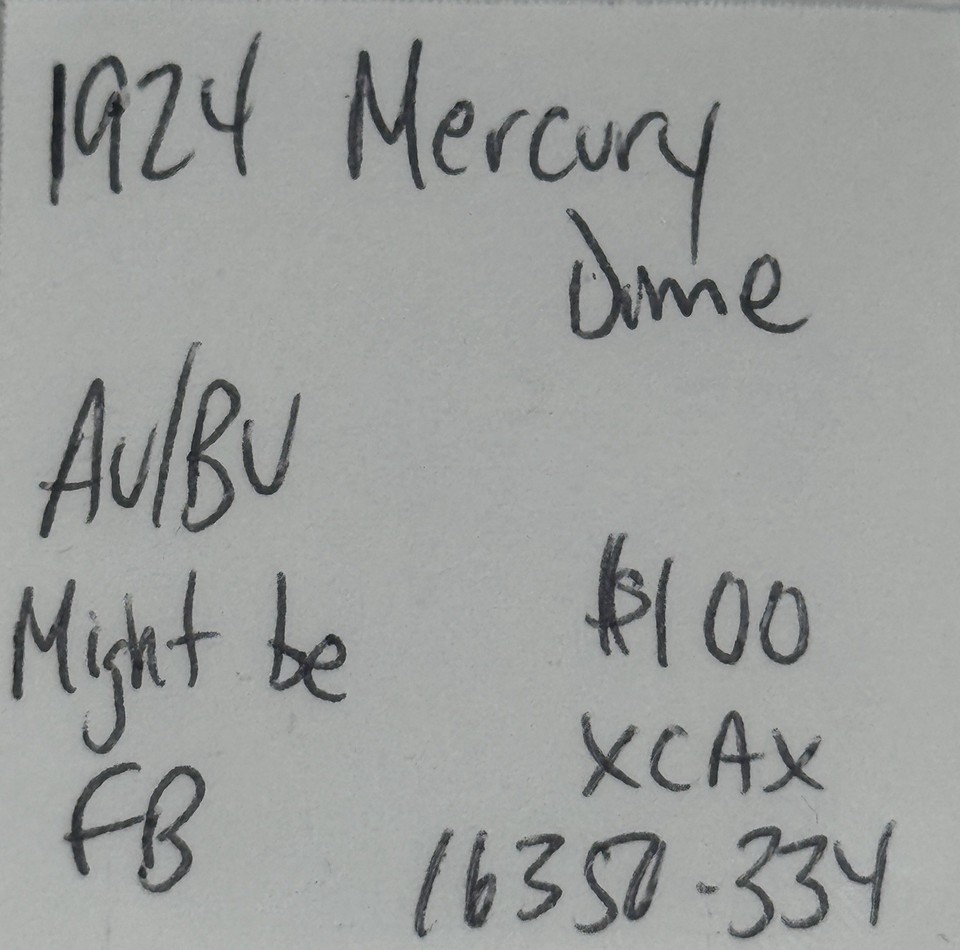 1924 Mercury
Dime
AU/BU
Might be
FB
$100
XCAX
16350-334